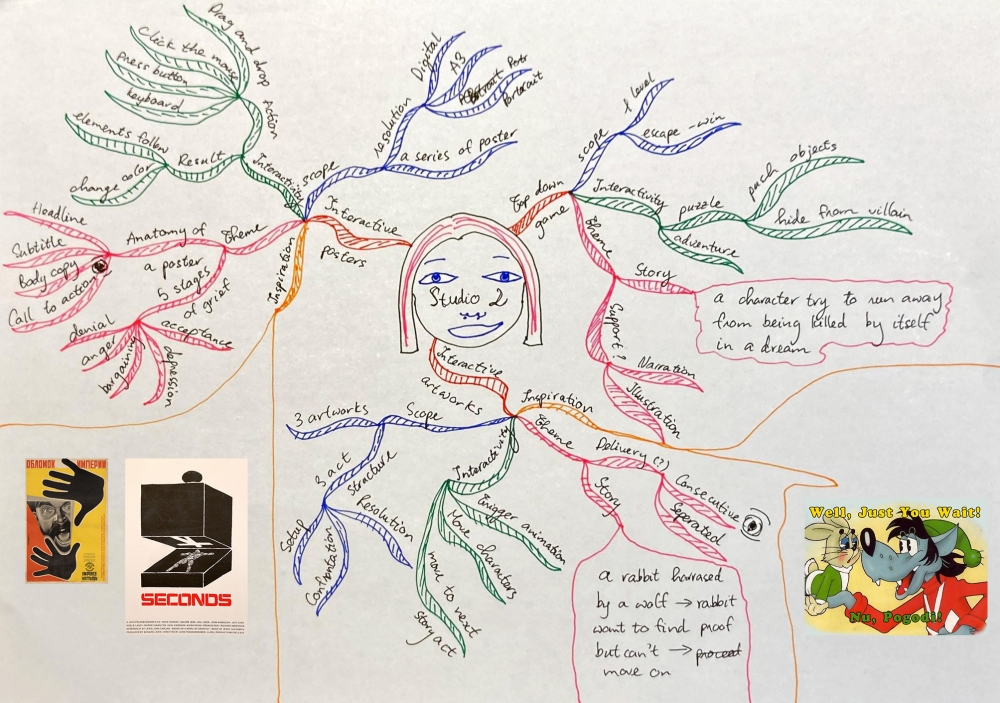 Studio 2
Interactive
posters
Scope
resolution
Digital
A3
Portrait
a series of poster
Interactivity
Action
Drag and drop
Click the mouse
press button
keyboard
Result
elements follow
change color
Theme
Anatomy of
a poster
Headline
Subtitle
Body copy
Call to action
5 stages
of grief
denial
anger
bargaining
depression
acceptance
Inspiration
ОБЛОМОК ИМПЕРИИ
SECONDS
Top down
game
scope
1 level
escape - win
Interactivity
puzzle
puch objects
hide from villain
adventure
Theme
Story
a character try to run away
from being killed by itself
in a dream
Support?
Narration
Illustration
Interactive
artworks
Inspiration
Scope
3 artworks
3 act
structure
Setup
Confrontation
Resolution
Interactivity
trigger animation
Move characters
move to next
story act
Theme
Delivery (?)
Consecutive
Seperated
Story
a rabbit harrased
by a wolf → rabbit
want to find proof
but can't → proceed
move on
Well, Just You Wait!
Nu, Pogodi!